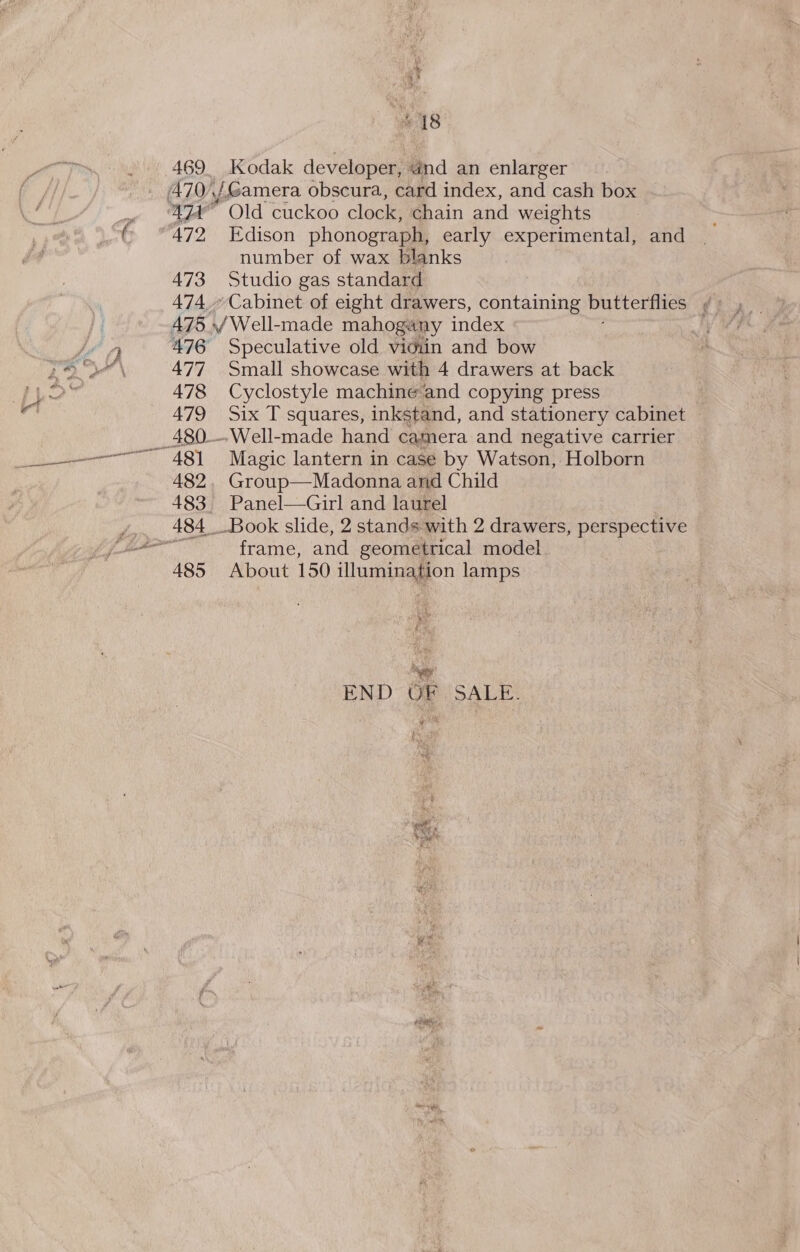 18
469 Kodak developer, and an enlarger
470 Camera obscura, card index, and cash box
471 Old cuckoo clock, chain and weights
472 Edison phonograph, early experimental, and
number of wax blanks
473 Studio gas standard
474 Cabinet of eight drawers, containing butterflies
475 Well-made mahogany index
476 Speculative old violin and bow
477 Small showcase with 4 drawers at back
478 Cyclostyle machine and copying press
479 Six T squares, inkstand, and stationery cabinet
480 Well-made hand camera and negative carrier
481 Magic lantern in case by Watson, Holborn
482 Group—Madonna and Child
483 Panel—Girl and laurel
484 Book slide, 2 stands with 2 drawers, perspective
frame, and geometrical model
485 About 150 illumination lamps
END OF SALE.